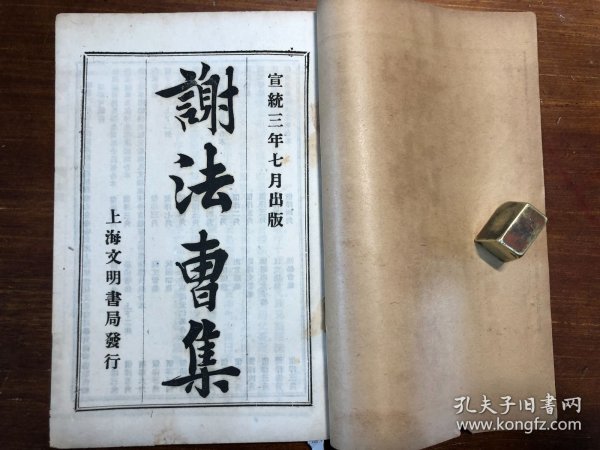 宣統三年七月出版
謝法曹集
上海文明書局發行
孔夫子旧书网
www.kongfz.com